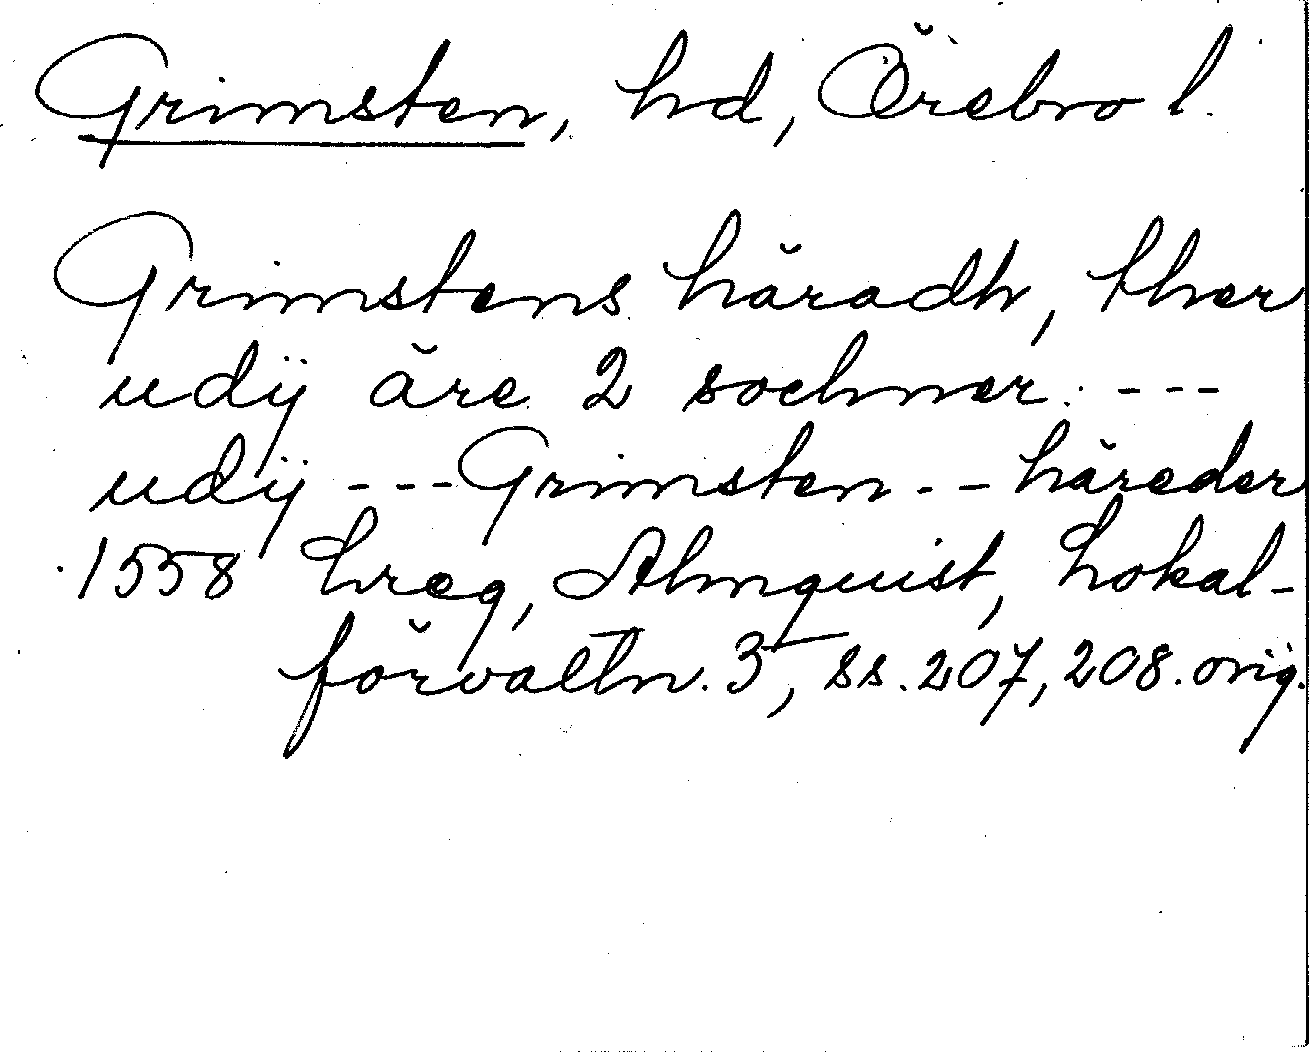 Grimsten, hd, Örebro l.
Grimstens häradh, ther
udij äre 2 sochner. ---
udij --- Grimsten -- häreder
1558 Lreg, Almquist, Lokal-
förvaltn. 3, ss. 207, 208. orig.